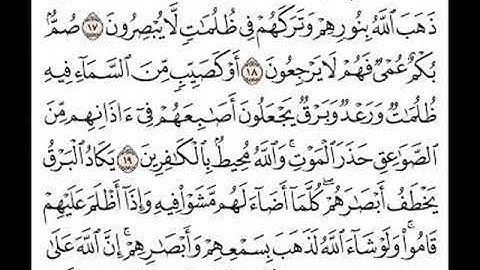 ذَهَبَ ٱللَّهُ بِنُورِهِمْ وَتَرَكَهُمْ فِى ظُلُمَٰتٍ لَّا يُبْصِرُونَ ١٧ صُمٌّۢ
بُكْمٌ عُمْىٌ فَهُمْ لَا يَرْجِعُونَ ١٨ أَوْ كَصَيِّبٍ مِّنَ ٱلسَّمَآءِ فِيهِ
ظُلُمَٰتٌ وَرَعْدٌ وَبَرْقٌ يَجْعَلُونَ أَصَٰبِعَهُمْ فِىٓ ءَاذَانِهِم مِّنَ
ٱلصَّوَٰعِقِ حَذَرَ ٱلْمَوْتِ ۚ وَٱللَّهُ مُحِيطٌۢ بِٱلْكَٰفِرِينَ ١٩ يَكَادُ ٱلْبَرْقُ
يَخْطَفُ أَبْصَٰرَهُمْ ۖ كُلَّمَآ أَضَآءَ لَهُم مَّشَوْا۟ فِيهِ وَإِذَآ أَظْلَمَ عَلَيْهِمْ
قَامُوا۟ ۚ وَلَوْ شَآءَ ٱللَّهُ لَذَهَبَ بِسَمْعِهِمْ وَأَبْصَٰرِهِمْ ۚ إِنَّ ٱللَّهَ عَلَىٰ